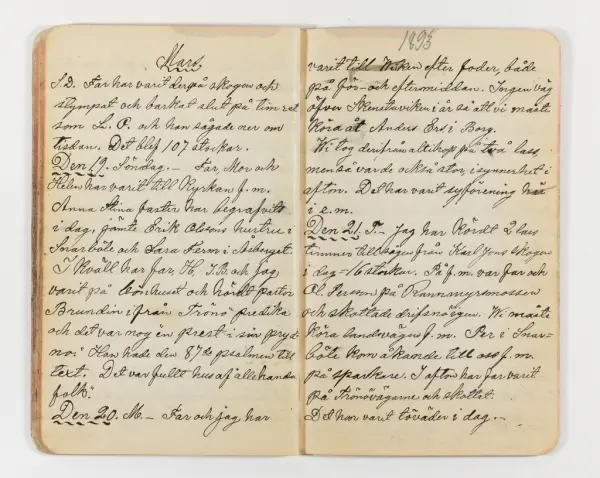 Mars,
S. D. Far har varit der på skogen och
stympat och barkat slut på timret
som L. P. och han sågade ner om
tisdan. Det blef 107 stockar.
Den 19. Söndag. — Far, Mor och
Helin har varit till Kyrkan f. m.
Anna Stina faster har begrafvits
i dag, jämte Erik Olsons hustru i
Snarböle och Sara Ferm i Åsberget.
I kväll har far, H, J. B. och jag
varit på Bönhuset och hördt pastor
Brundin ifrån Trönö predika
och det var nog en prest i sin pryd
no." Han hade den 87de psalmen till
text. Det var fullt hus af allehanda
folk."
Den 20. M. — Far och jag har
1893
varit till Viken efter foder, både
på för- och eftermiddan. Ingen väg
öfver Stenstaviken i år så att vi måste
köra åt Anders Ers i Borg.
Vi tog derifrån altihop på två lass,
men så var de också stor, i synnerhet i
afton. Det har varit syförening här
i e. m.
Den 21. T. — Jag har Kördt 2 lass
timmer till sågen från Karl Jons skogen
i dag = 16 stockar. På f. m. var far och
Ol. Persson på Rannmyrsmossen
och skottade drifsnövägen. Vi måste
köra landvägen f. m. Per i Snar-
böle kom åkande till oss f. m.
på sparkare. I afton har far varit
på Trönövägarne och skottat.
Det har varit töväder i dag. —